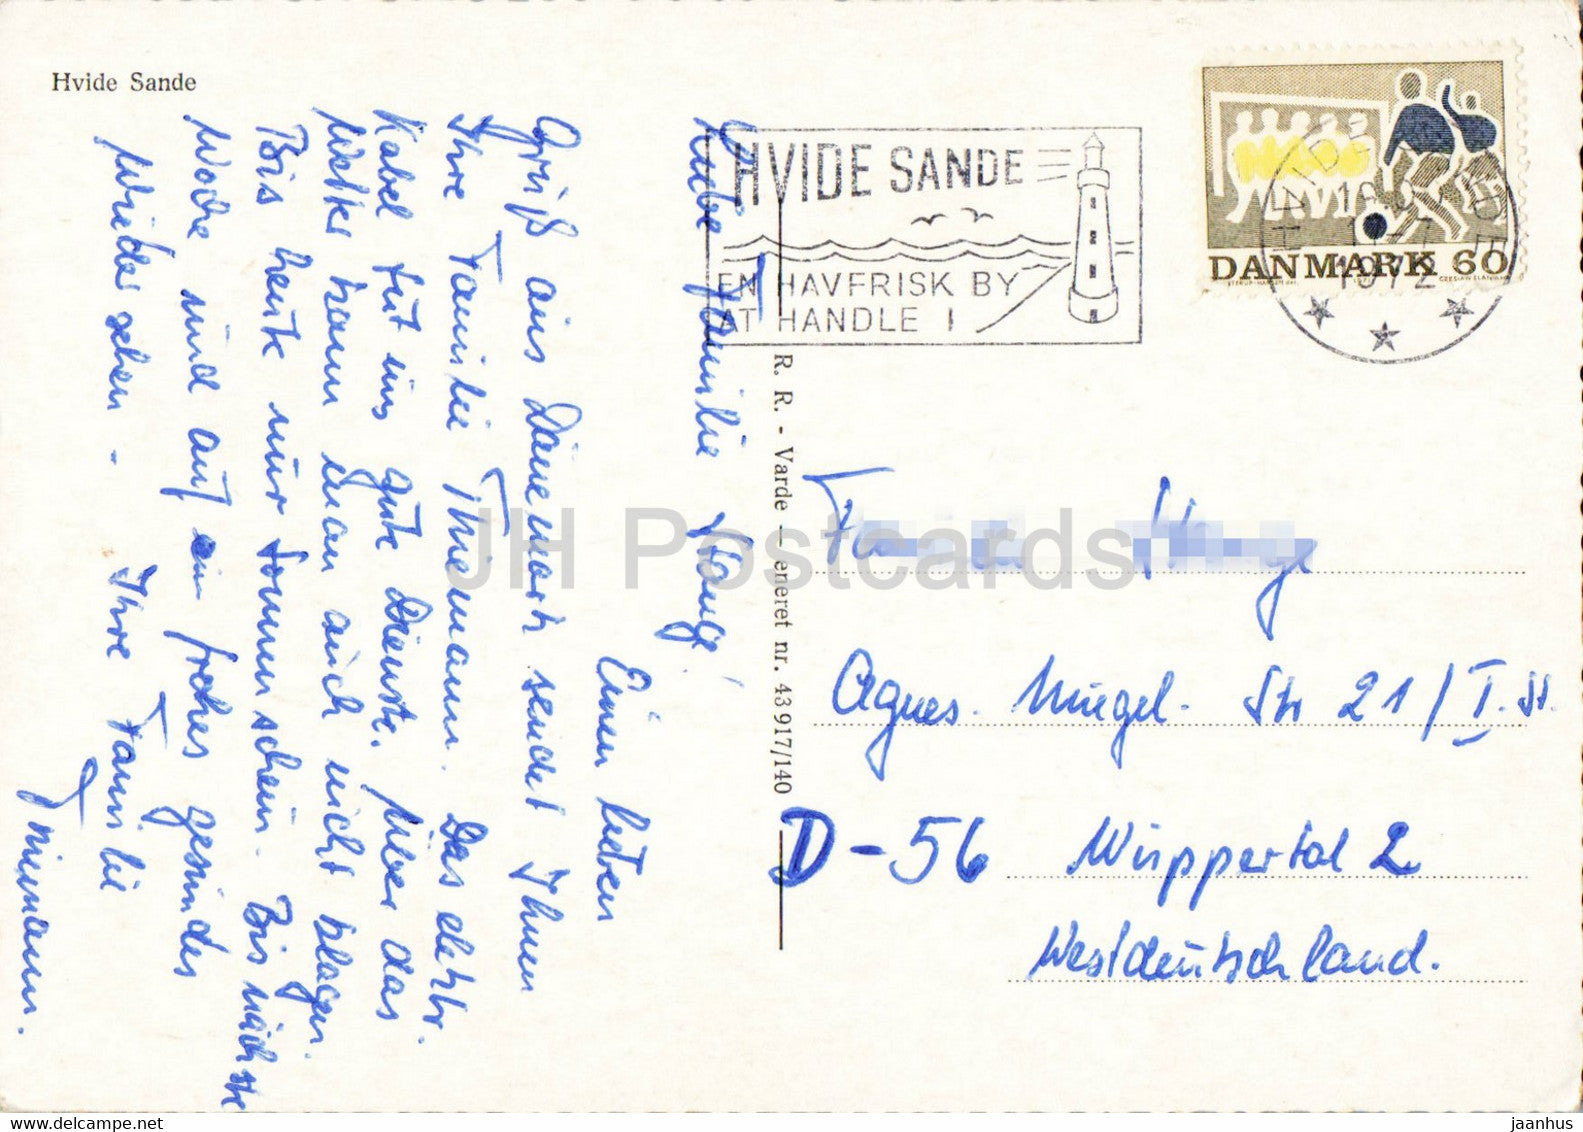 Hvide Sande
HVIDE SANDE
EN HAVFRISK BY
AT HANDLE I
HVIDE SANDE
1972
DANMARK 60
CZESLAW SLANIA
R. R. - Varde — eneret nr. 43917/140
Liebe Familie
Einen lieben
Gruß aus Dänemark sendet Ihnen
Ihre Familie Thiemann. Das elektr.
Kabel tut uns gute Dienste. Über das
Wetter kann man auch nicht klagen.
Bis heute nur Sonnenschein. Bis nächste
Woche und auf ein frohes gesundes
Wiedersehen -
Ihre Familie
Thiemann.
Agnes. Miegel. Str 21/I. St.
D-56 Wuppertal 2
Westdeutschland.
JH Postcards
jaanhus @ HipPostcard.com